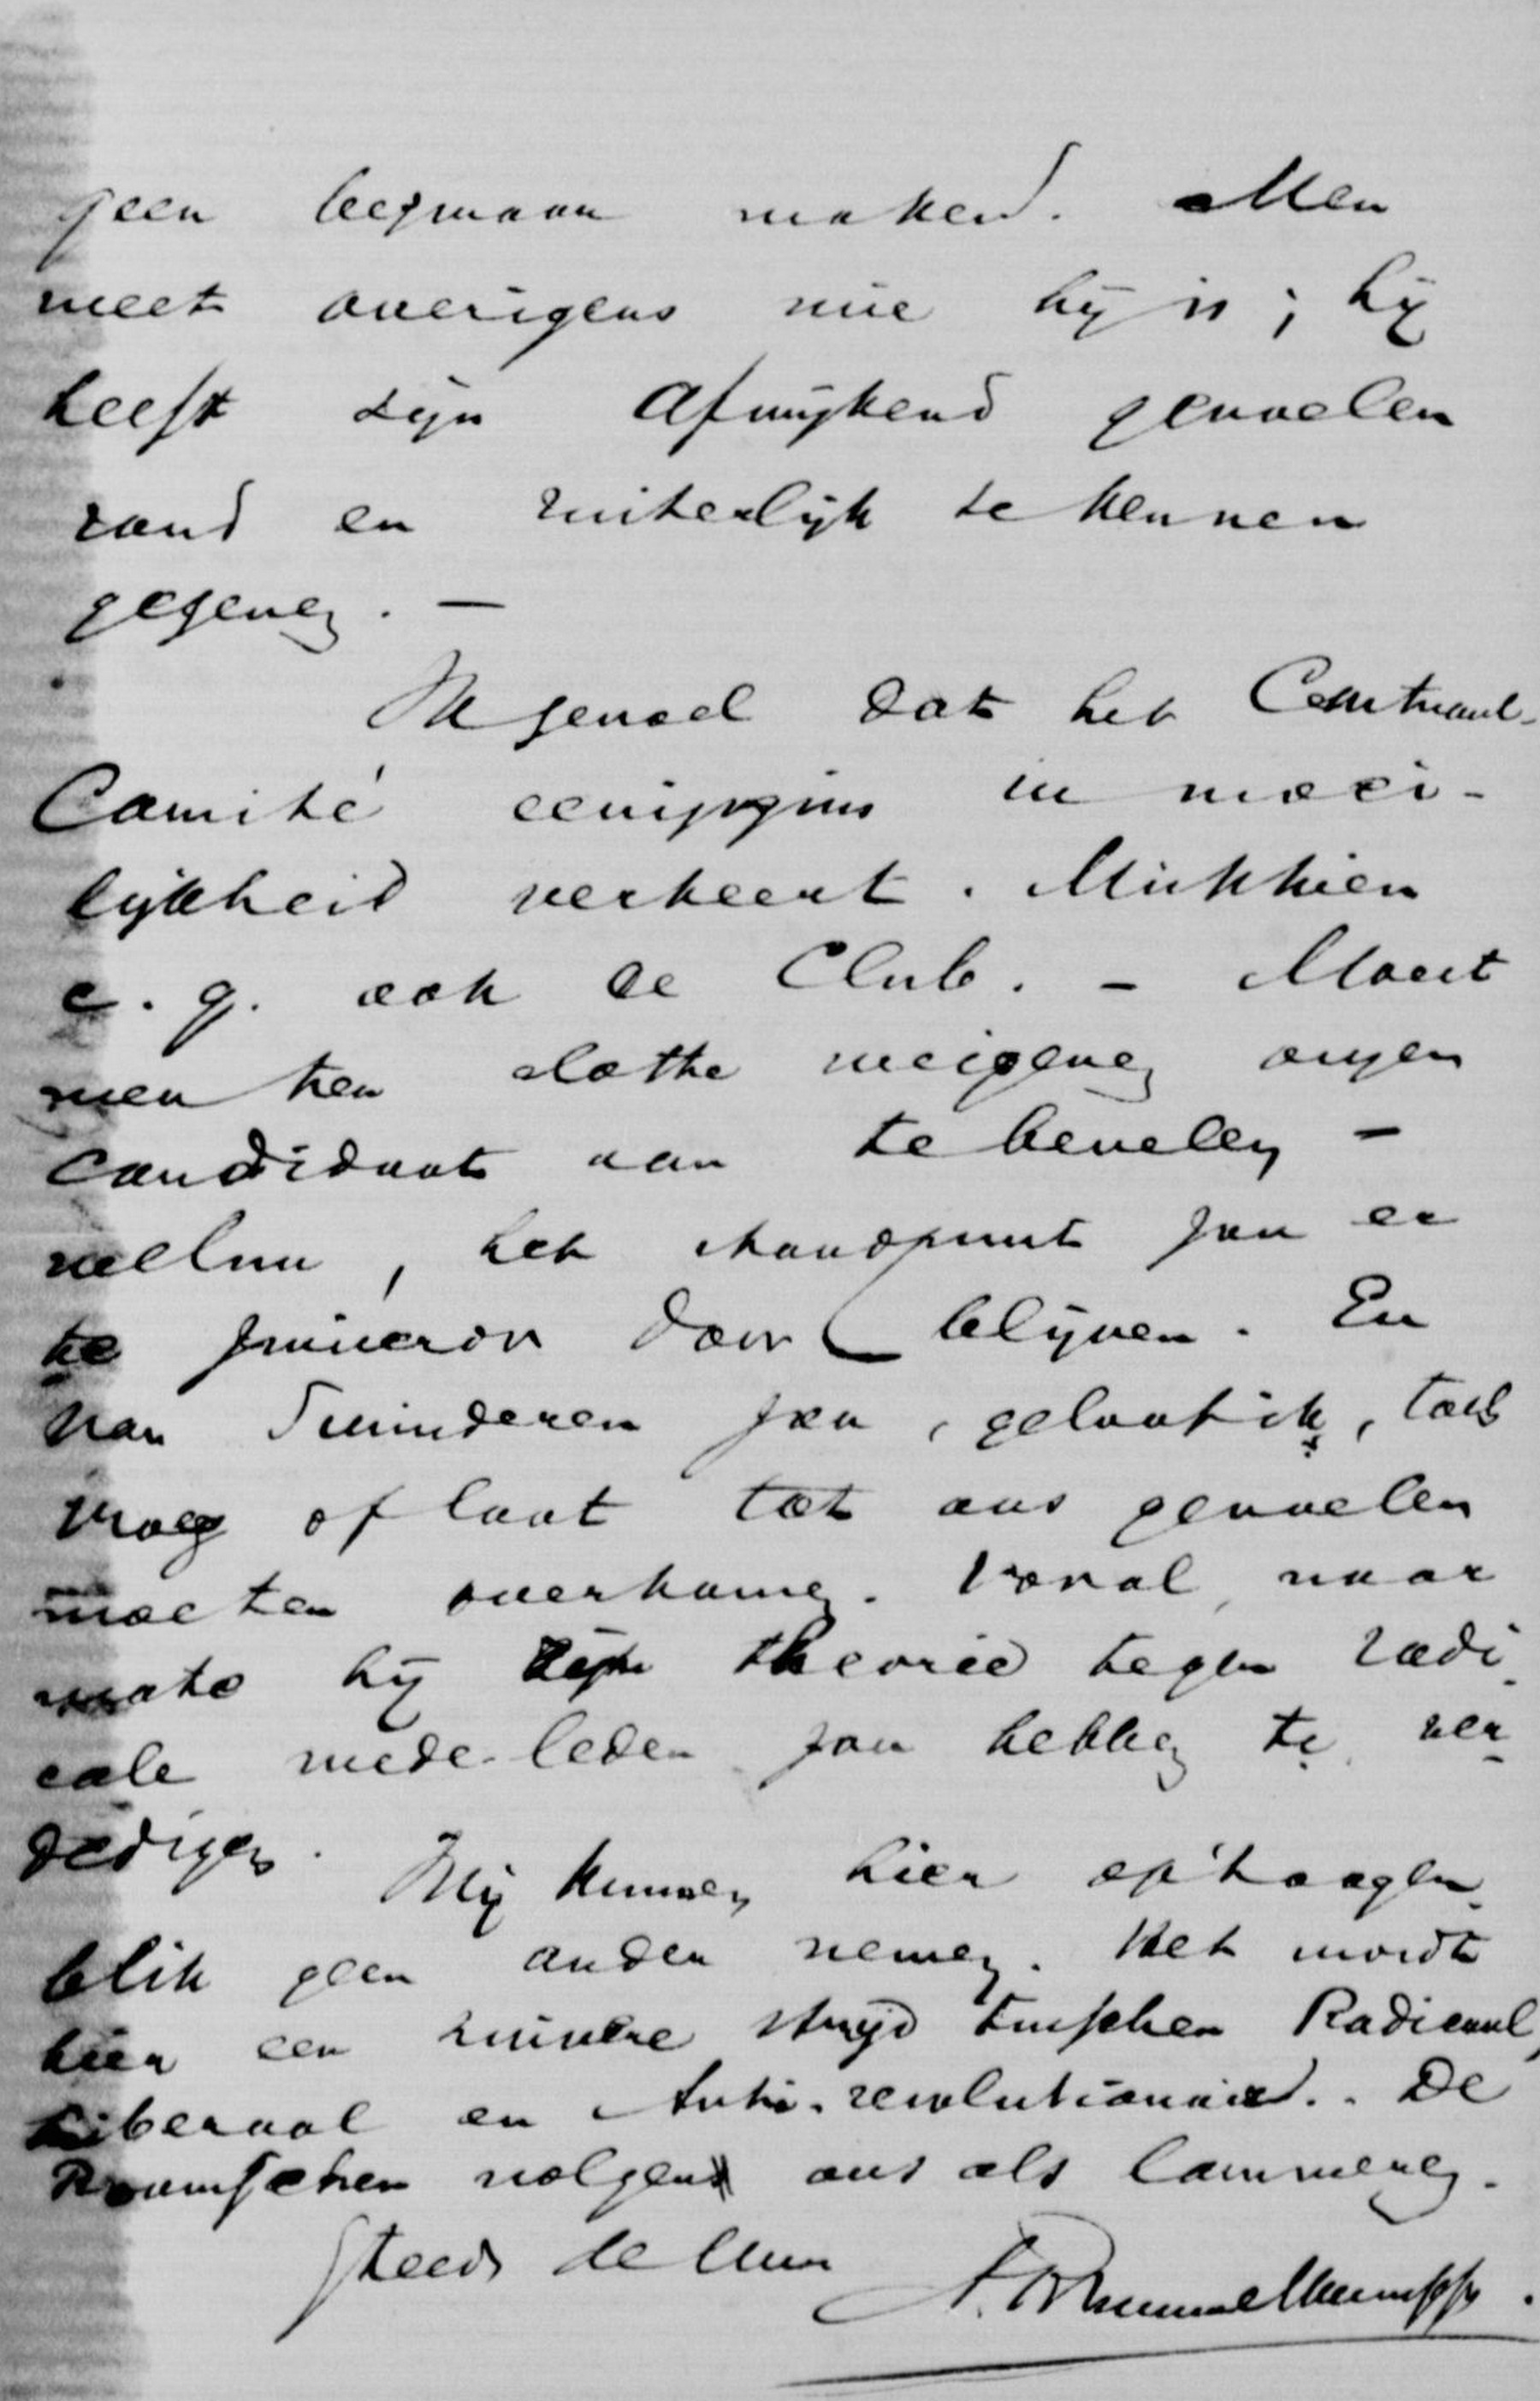 geen bezwaar maken. Men
weet overigens wie hij is; hij
heeft zijn afwijkend gevoelen
rond en ruiterlijk te kennen
gegeven. —
Ik gevoel dat het Centraal-
Comité eenigzins in moei-
lijkheid verkeert. Mitsdien
e. g. ook de Club. – Moest
men ten slotte weigeren onzen
candidaat aan te bevelen –
welnu, het standpunt zou er
te zuiverder door blijven. En
van Swinderen zou, geloof ik, toch
vroeg of laat tot ons gevoelen
moeten overkomen. Vooral, naar
mate hij zijn theorie tegen radi-
cale mede-leden zou hebben te ver-
dedigen.
Wij kunnen hier op 't oogen-
blik geen ander nemen. Het wordt
hier een zuivere strijd tusschen Radicaal,
Liberaal en Anti-revolutionair. De
Roomschen volgen ons als lammeren.
Steeds de Uwe
A. Brummelkamp Jr.